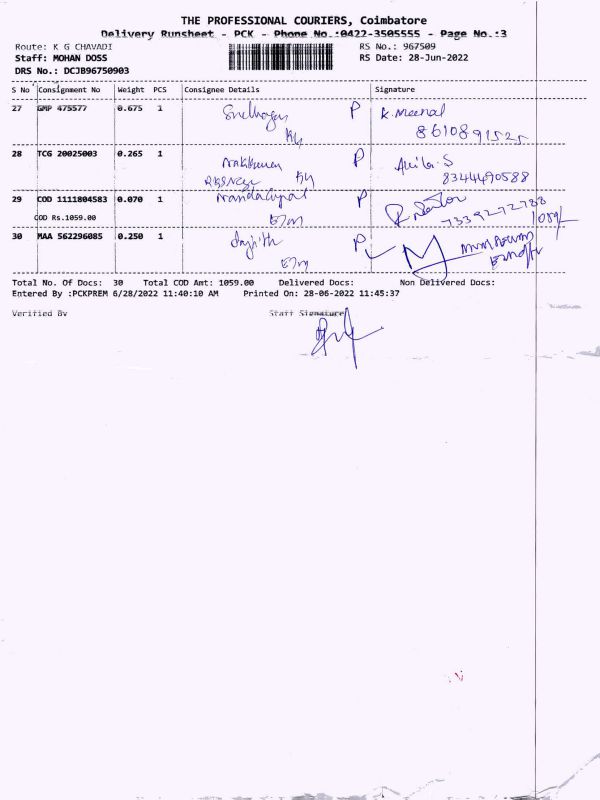 THE PROFESSIONAL COURIERS, Coimbatore
Delivery Runsheet - PCK - Phone No.:0422-3505555 - Page No.:3
Route: K G CHAVADI RS No.: 967509
Staff: MOHAN DOSS RS Date: 28-Jun-2022
DRS No.: DCJB96750903
S No Consignment No Weight PCS Consignee Details Signature
27 GMP 475577 0.675 1 P K. Meenal
8610891525
28 TCG 20025003 0.265 1 P Akila. S
8344490588
29 COD 1111804583 0.070 1 Nandagopal P
7339272788
COD Rs.1059.00 1059/-
30 MAA 562296085 0.250 1 P
Total No. Of Docs: 30 Total COD Amt: 1059.00 Delivered Docs: Non Delivered Docs:
Entered By :PCKPREM 6/28/2022 11:40:10 AM Printed On: 28-06-2022 11:45:37
Verified By Staff Signature